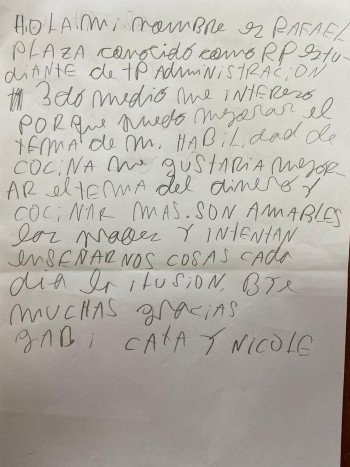 HOLA mi nombre es RAFAEL
PLAZA conocido como RP estu
diANTE de tP AdminiSTRACION
3do medio me iNTEREso
PORque puedo mejorar el
tEMA de mi HABiLidad de
COCiNA me gUSTARiA mejor
AR el tEMA del dinero y
COCiNAR MAS. SON AMABLES
los profes Y INTENTAN
enSEÑARNOS COSAS CADA
diA la ilusion, BYE
MUCHAS gRACiAS
gABi CAtA Y NICOLE